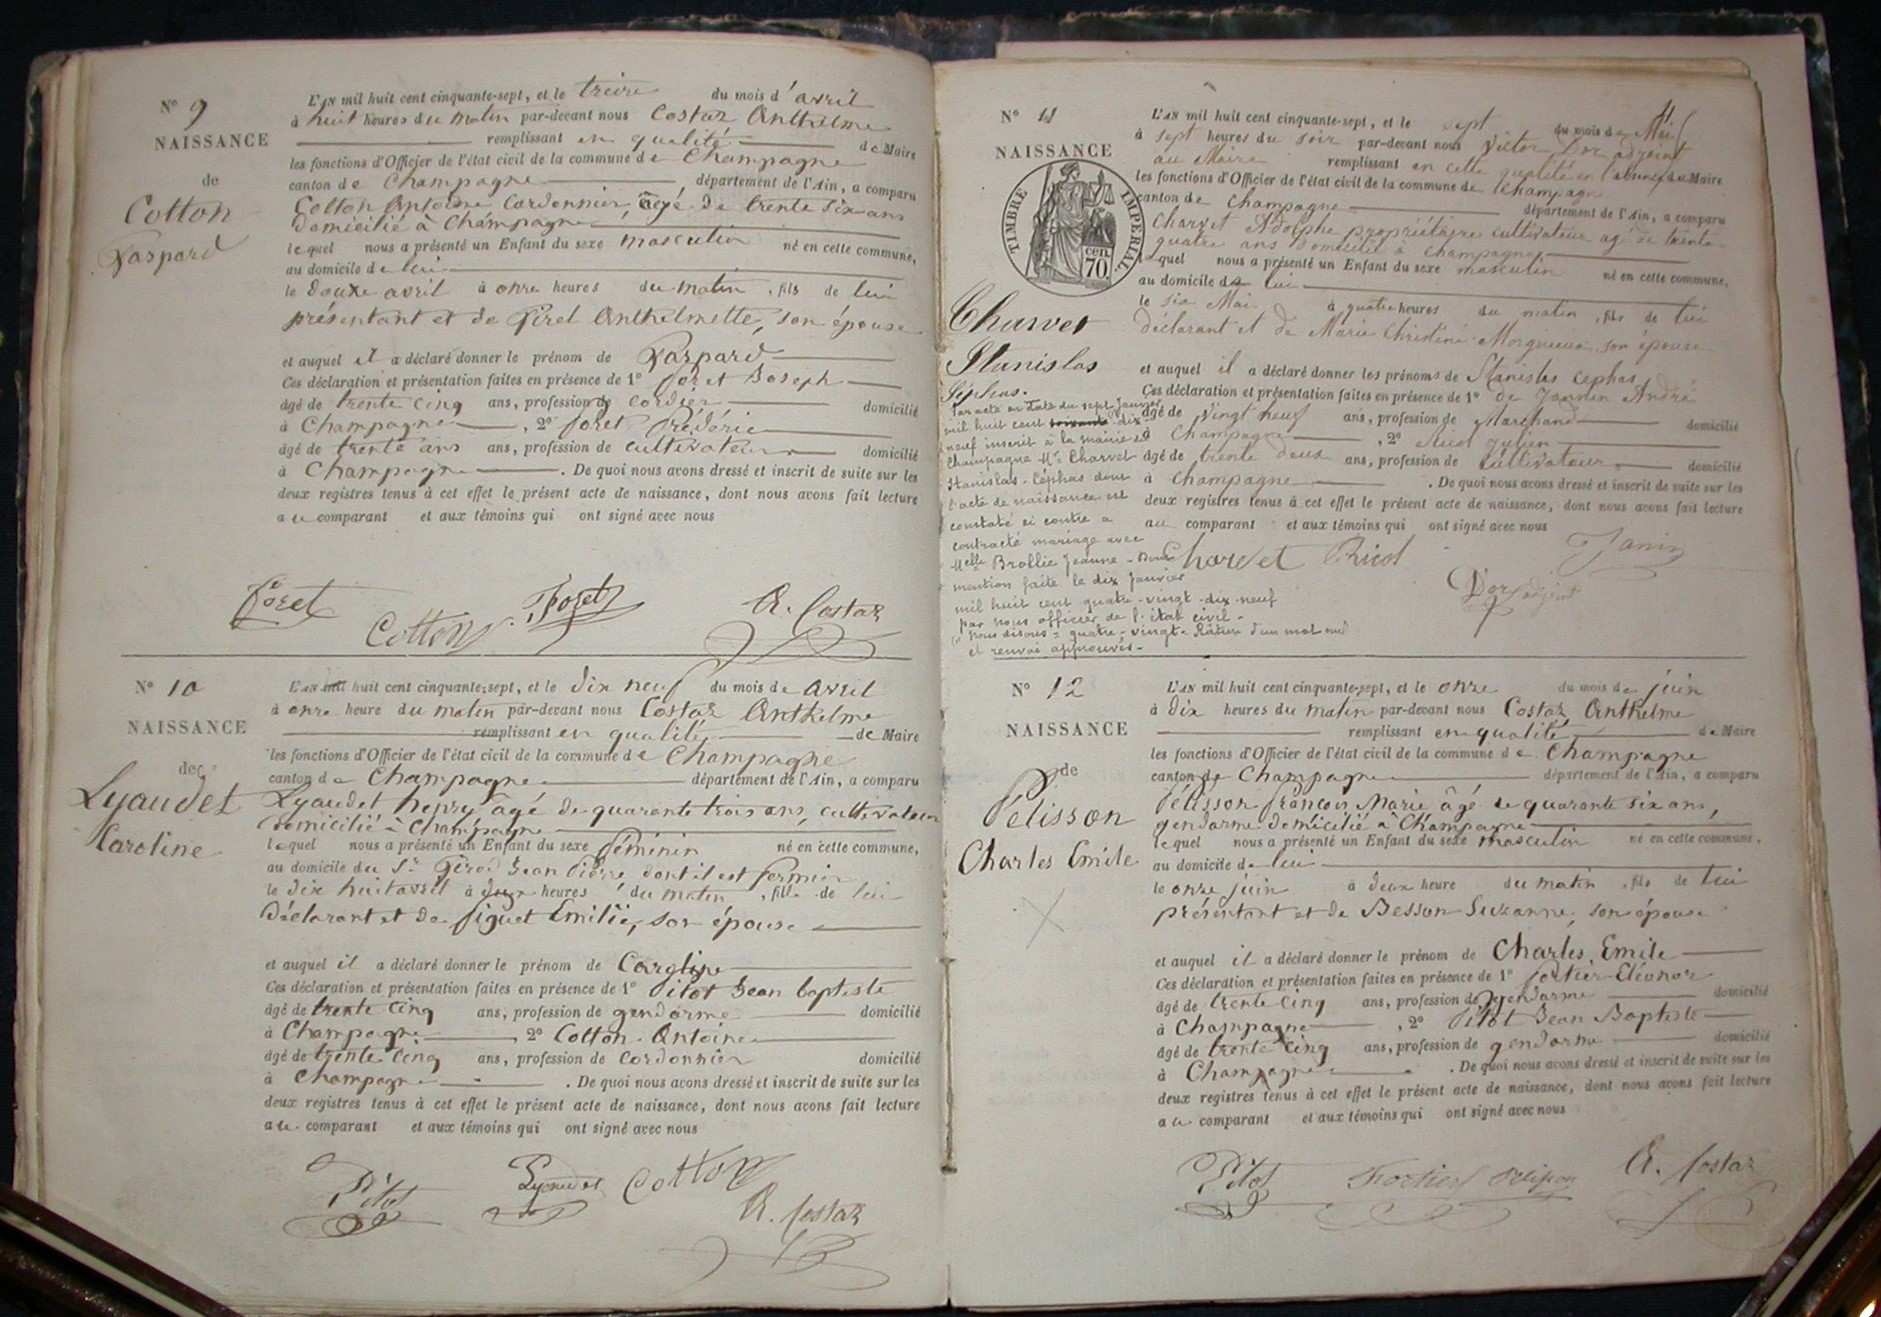 N° 9
NAISSANCE
de
Cotton
Gaspard
L'AN mil huit cent cinquante-sept, et le treize du mois d'avril
à huit heures du matin par-devant nous Costaz Anthelme
remplissant en qualité de Maire
les fonctions d'Officier de l'état civil de la commune de Champagne
canton de Champagne département de l'Ain, a comparu
Cotton Antoine Cordonnier, âgé de trente six ans
domicilié à Champagne
lequel nous a présenté un Enfant du sexe masculin né en cette commune,
au domicile de lui
le douze avril à onze heures du matin, fils de lui
présentant et de Piret Anthelmette, son épouse
et auquel il a déclaré donner le prénom de Gaspard
Ces déclaration et présentation faites en présence de 1° foret Joseph
âgé de trente cinq ans, profession de cordier domicilié
à Champagne, 2° foret frédéric
âgé de trente ans ans, profession de cultivateur domicilié
à Champagne. De quoi nous avons dressé et inscrit de suite sur les
deux registres tenus à cet effet le présent acte de naissance, dont nous avons fait lecture
au comparant et aux témoins qui ont signé avec nous
foret Cotton Foret A. Costaz
N° 10
NAISSANCE
de
Lyaudet
Caroline
L'AN mil huit cent cinquante-sept, et le dix neuf du mois de avril
à onze heure du matin par-devant nous Costaz Anthelme
remplissant en qualité de Maire
les fonctions d'Officier de l'état civil de la commune de Champagne
canton de Champagne département de l'Ain, a comparu
Lyaudet henry âgé de quarante trois ans, cultivateur
domicilié à Champagne
lequel nous a présenté un Enfant du sexe féminin né en cette commune,
au domicile du Sr Girod Jean Pierre dont il est fermier
le dix huit avril à heures du matin, fille de lui
déclarant et de figuet Emilie, son épouse
et auquel il a déclaré donner le prénom de Caroline
Ces déclaration et présentation faites en présence de 1° Pitot Jean baptiste
âgé de trente cinq ans, profession de gendarme domicilié
à Champagne 2° Cotton Antoine
âgé de trente cinq ans, profession de cordonnier domicilié
à Champagne. De quoi nous avons dressé et inscrit de suite sur les
deux registres tenus à cet effet le présent acte de naissance, dont nous avons fait lecture
au comparant et aux témoins qui ont signé avec nous
Pitot Lyaudet Cotton
A. Costaz
N° 11
NAISSANCE
TIMBRE IMPERIAL
70 cen.
Charvet
Stanislas
Céphas.
Par acte en date du sept Janvier
mil huit cent soixante dix
neuf inscrit à la mairie de
Champagne Mr Charvet
Stanislas-Céphas dont
l'acte de naissance est
constaté ci contre a
contracté mariage avec
Melle Brollie Jeanne - Dont
mention faite le dix Janvier
mil huit cent quatre-vingt-dix-neuf
par nous officier de l'état civil.
nous disons = quatre-vingt. Rature d'un mot nul
et renvoi approuvés.
L'AN mil huit cent cinquante-sept, et le sept du mois de Mai
à sept heures du soir par-devant nous Victor Dor adjoint
au Maire remplissant en cette qualité en l'absence du Maire
les fonctions d'Officier de l'état civil de la commune de Champagne
canton de Champagne département de l'Ain, a comparu
Charvet Adolphe propriétaire cultivateur agé de trente
quatre ans domicilié à Champagne,
lequel nous a présenté un Enfant du sexe masculin né en cette commune,
au domicile de lui
le six Mai à quatre heures du matin, fils de lui
déclarant et de Marie Christine son épouse
et auquel il a déclaré donner les prénoms de Stanislas Cephas,
Ces déclaration et présentation faites en présence de 1° de Janvin André
âgé de vingt neuf ans, profession de Marchand domicilié
à Champagne, 2° Ricot Julien
âgé de trente deux ans, profession de Cultivateur domicilié
à Champagne. De quoi nous avons dressé et inscrit de suite sur les
deux registres tenus à cet effet le présent acte de naissance, dont nous avons fait lecture
au comparant et aux témoins qui ont signé avec nous
Charvet Ricot Janin
Dor adjoint
N° 12
NAISSANCE
de
Pélisson
Charles Emile
L'AN mil huit cent cinquante-sept, et le onze du mois de juin
à dix heures du matin par-devant nous Costaz Anthelme
remplissant en qualité de Maire
les fonctions d'Officier de l'état civil de la commune de Champagne
canton de Champagne département de l'Ain, a comparu
Pélisson françois Marie âgé de quarante six ans,
gendarme domicilié à Champagne
lequel nous a présenté un Enfant du sexe masculin né en cette commune,
au domicile de lui
le onze juin à deux heure du matin, fils de lui
présentant et de Besson Suzanne, son épouse
et auquel il a déclaré donner le prénom de Charles, Emile
Ces déclaration et présentation faites en présence de 1° fortier Eléonor
âgé de trente cinq ans, profession de gendarme domicilié
à Champagne, 2° Pitot Jean Baptiste
âgé de trente cinq ans, profession de gendarme domicilié
à Champagne. De quoi nous avons dressé et inscrit de suite sur les
deux registres tenus à cet effet le présent acte de naissance, dont nous avons fait lecture
au comparant et aux témoins qui ont signé avec nous
Pitot Fortier Pelisson A. Costaz